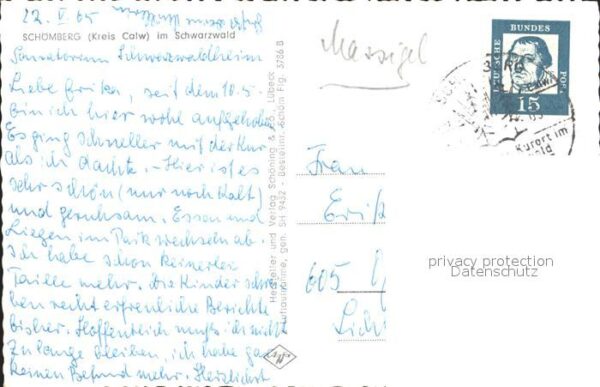 22. V. 65
SCHÖMBERG (Kreis Calw) im Schwarzwald
Sanatorium Schwarzwaldheim
Liebe Erika, seit dem 10.5.
bin ich hier wohl aufgehoben
Es ging schneller mit der Kur
als ich dachte. Hier ist es
sehr schön (nur noch kalt)
und geruhsam. Essen und
Liegen im Park wechseln ab.
Ich habe schon keinerlei
Taille mehr. Die Kinder schrei-
ben recht erfreuliche Berichte
bisher. Hoffentlich muß ich nicht
zu lange bleiben, ich habe gar
keinen Befund mehr. Herzlichst
Hersteller und Verlag Schöning & Co., Lübeck
Luftaufnahme, gen. SH 9432 - Bestellnr. Schöm Flg. 5786 B
Massigel
DEUTSCHE BUNDESPOST
15
Kurort im
Frau
605
privacy protection
Datenschutz